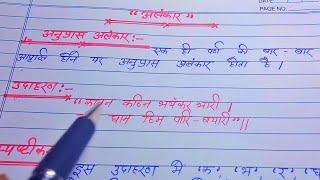 DATE
PAGE NO.
"अलंकार"
अनुप्रास अलंकार:-
एक ही वर्ण की बार-बार
आवृत्ति होने पर अनुप्रास अलंकार होता है।
उदाहरण:-
कठिन भयंकर भारी।
घाम हिम वारि-बयारी"॥
इस उदाहरण में 'क' 'भ' 'र'